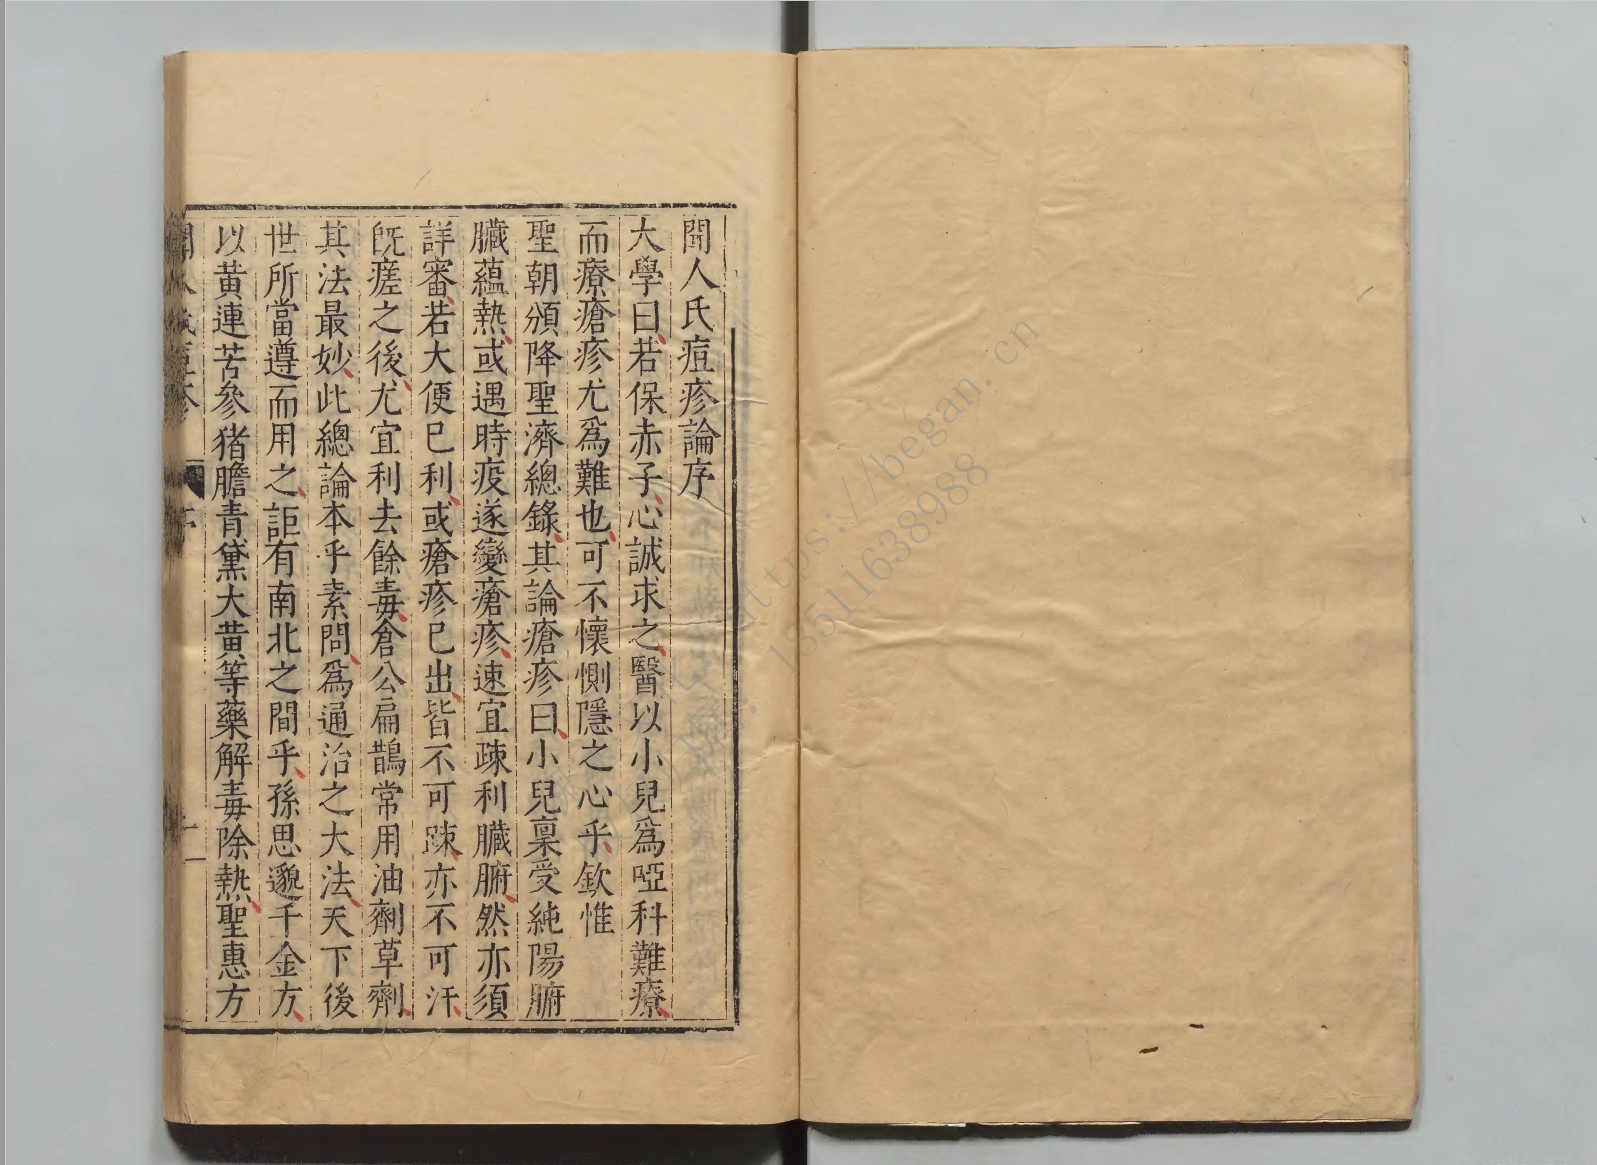 聞人氏痘疹論序
大學曰若保赤子心誠求之醫以小兒爲啞科難療
而療瘡疹尤爲難也可不懷惻隱之心乎欽惟
聖朝頒降聖濟總錄其論瘡疹曰小兒稟受純陽腑
臟蘊熱或遇時疫遂變瘡疹速宜踈利臟腑然亦須
詳審若大便已利或瘡疹已出皆不可踈亦不可汗
旣瘥之後尤宜利去餘毒倉公扁鵲常用油劑草劑
其法最妙此總論本乎素問爲通治之大法天下後
世所當遵而用之詎有南北之間乎孫思邈千金方
以黃連苦參猪膽青黛大黃等藥解毒除熱聖惠方
聞人氏痘疹
序
一
https://began.cn
18511638988